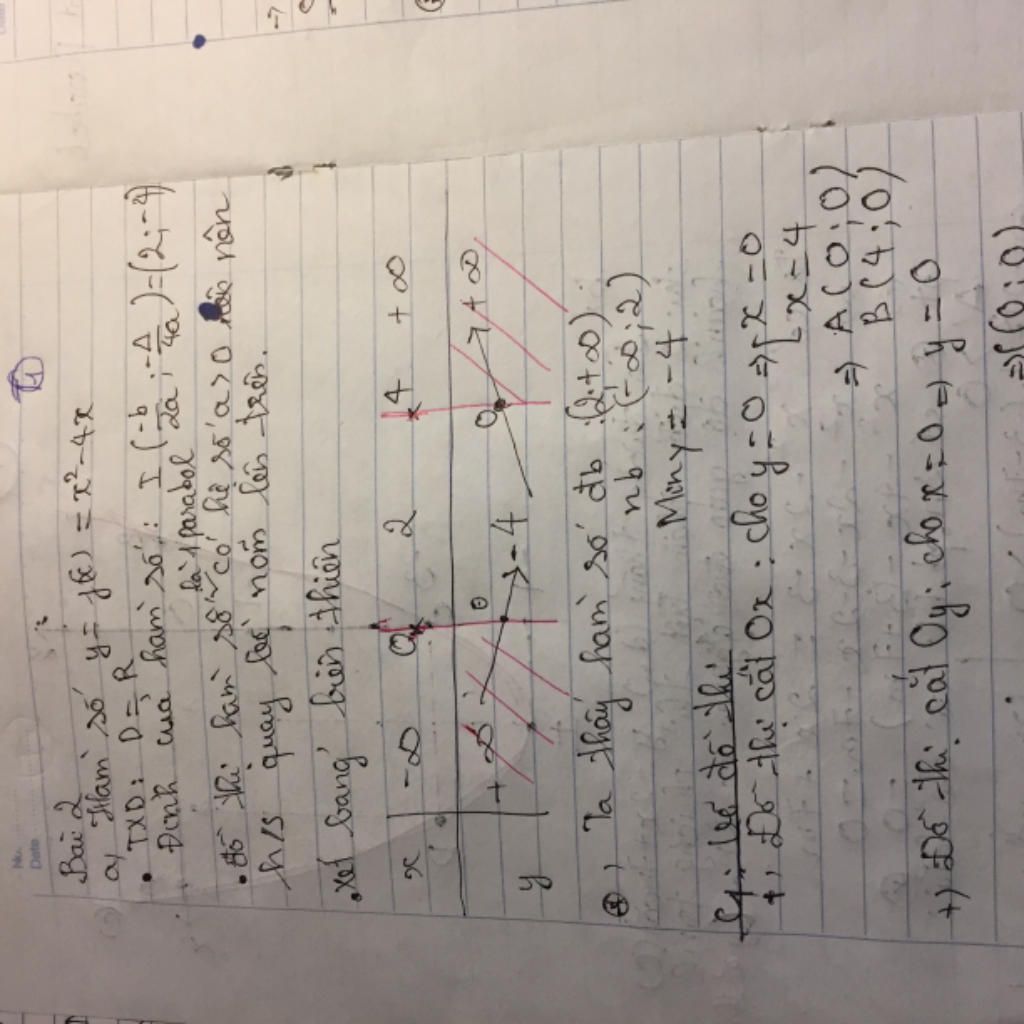 Bài 2
a, Hàm số y = f(x) = x² - 4x
• TXD: D = R
Đỉnh của hàm số: I (-b/2a ; -Δ/4a) = (2; -4)
là 1 parabol
• Đồ thị hàm số có hệ số a > 0 nên
h/s quay bề nõm lên trên.
• Xét bảng biến thiên
x -∞ 0 2 4 +∞
y +∞ 0 -4 0 +∞
⊕, Ta thấy hàm số đb: (2; +∞)
nb: (-∞; 2)
Min y = -4
vẽ đồ thị
+, Đồ thị cắt Ox: cho y = 0 => [x = 0
[x = 4
=> A(0; 0)
B(4; 0)
+) Đồ thị cắt Oy: cho x = 0 => y = 0
=> (0; 0)